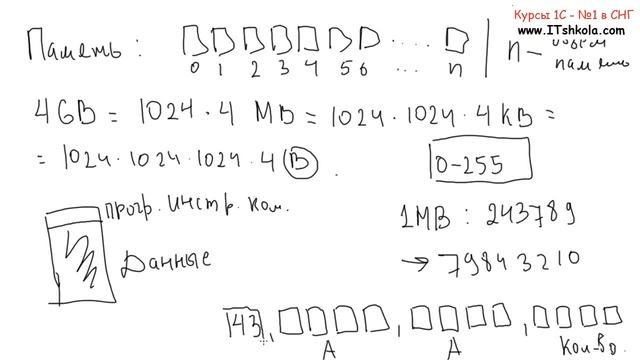 Курсы 1С - №1 в СНГ
www.ITshkola.com
Память :
0 1 2 3 4 5 6 ... n
n - объем
памяти
4GB = 1024 · 4 MB = 1024 · 1024 · 4 KB =
= 1024 · 1024 · 1024 · 4 B
0-255
прогр. инстр. ком.
1MB : 243789
Данные
→ 79843210
143, , ,
А А Кол-во